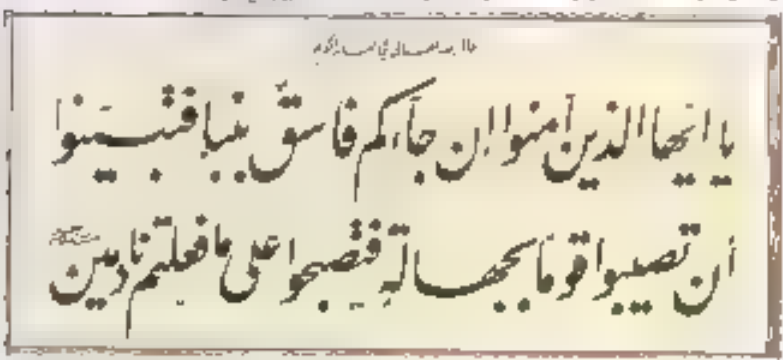 يا ايها الذين آمنوا ان جاءكم فاسق بنبإ فتبينوا
أن تصيبوا قوما بجهالة فتصبحوا على ما فعلتم نادمين